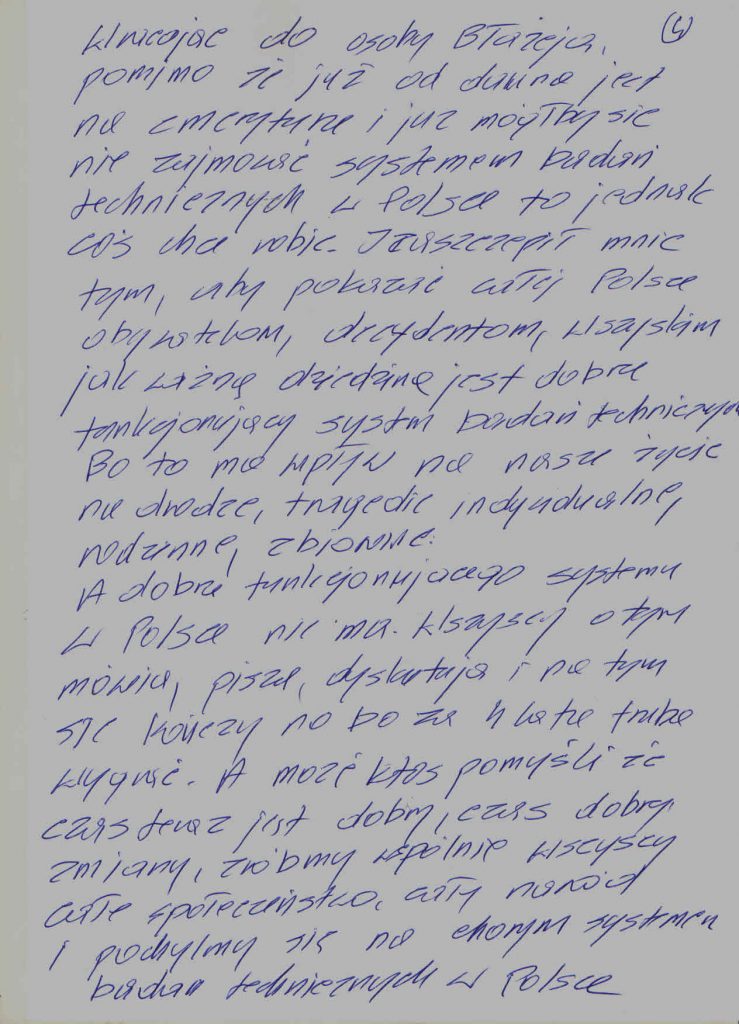 Wracając do osoby Błażeja,
pomimo że już od dawna jest
na emeryturze i już mógłby się
nie zajmować systemem badań
technicznych w Polsce to jednak
coś chce robić. Zaszczepił mnie
tym, aby pokazać całej Polsce
obywatelom, decydentom, wszystkim
jak ważną dziedziną jest dobrze
funkcjonujący system badań technicznych
Bo to ma wpływ na nasze życie
na drodze, tragedie indywidualne,
rodzinne, zbiorowe.
A dobrze funkcjonującego systemu
w Polsce nie ma. Wszyscy o tym
mówią, piszą, dyskutują i na tym
się kończy no bo za 4 lata trzeba
wygrać. A może ktoś pomyśli że
czas teraz jest dobry, czas dobrej
zmiany, zróbmy wspólnie wszyscy
całe społeczeństwo, cały naród
i pochylmy się na chorym systemem
badań technicznych w Polsce